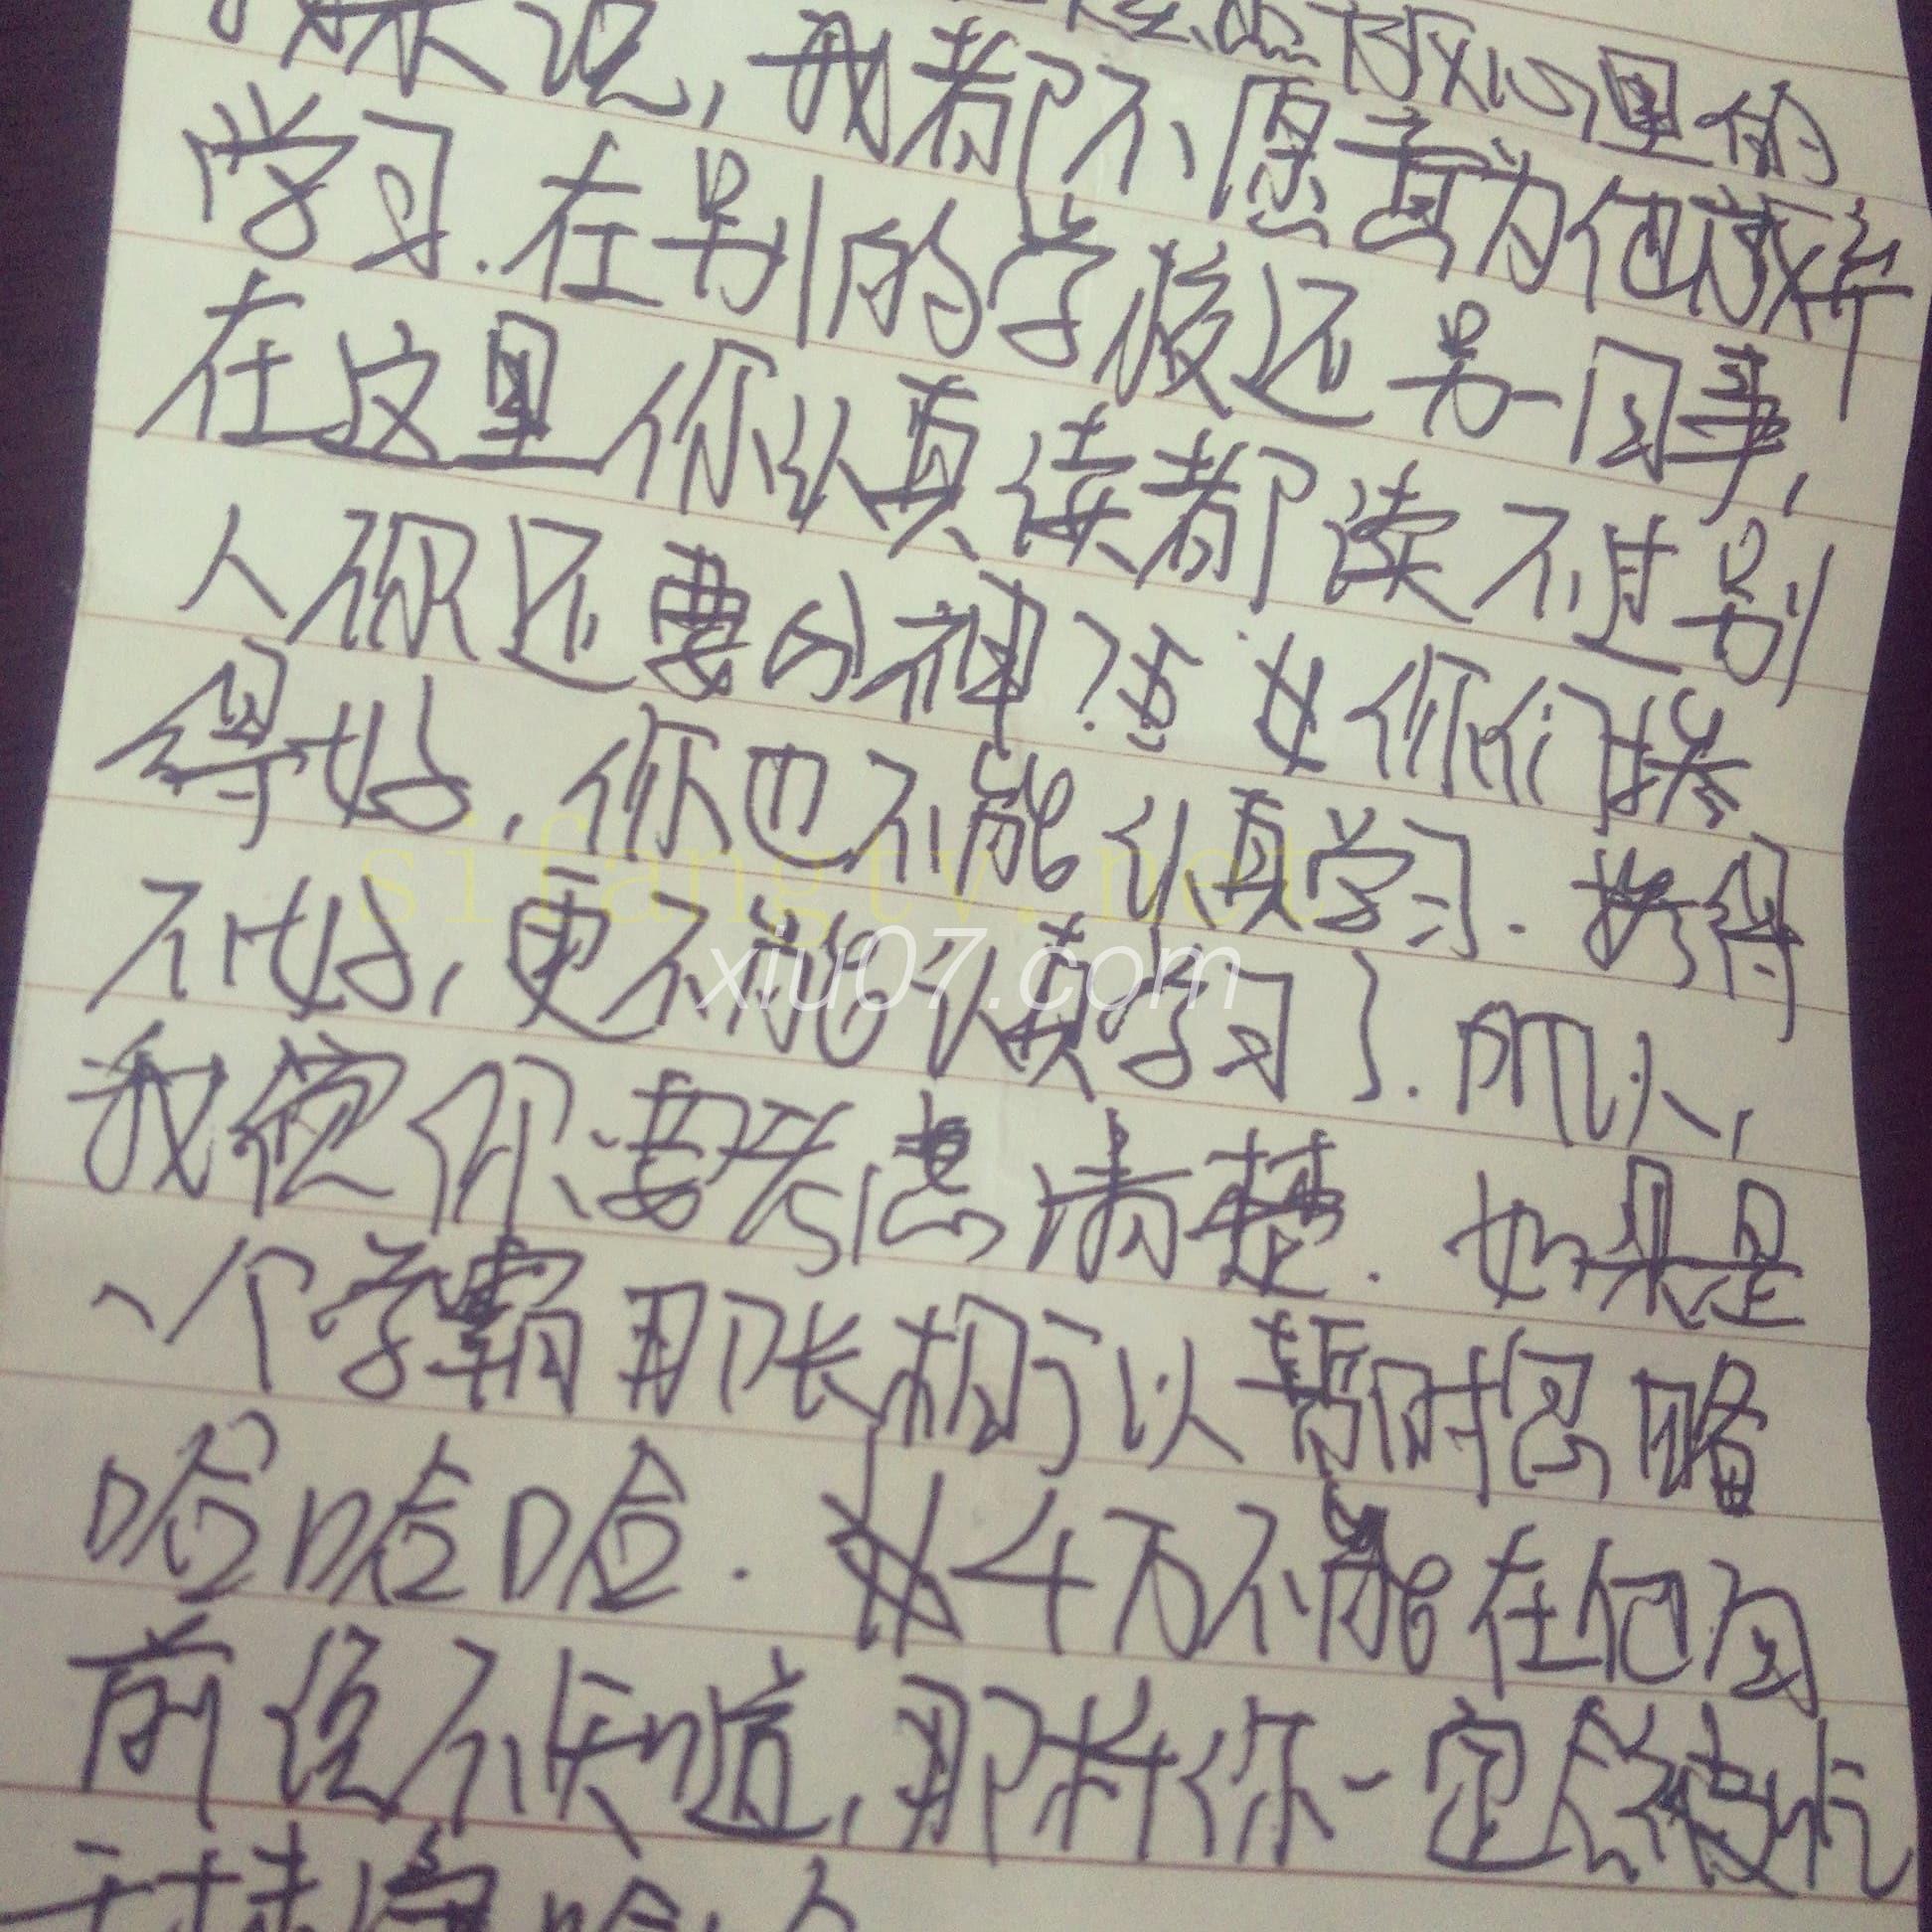 我心里的
来说，我都不愿意为他放弃
学习.在别的学校还另一回事，
在这里你认真读都读不过别
人你还要分神？要是你们谈
得好，你也不能认真学习.谈得
不好，更不能认真学习了.所以，
我觉你要考虑清楚.如果是
一个学霸那长相可以暂时忽略
哈哈哈.千万不能在他面
前说不知道，那样你一定会被
sifangtv.net
xiu07.com